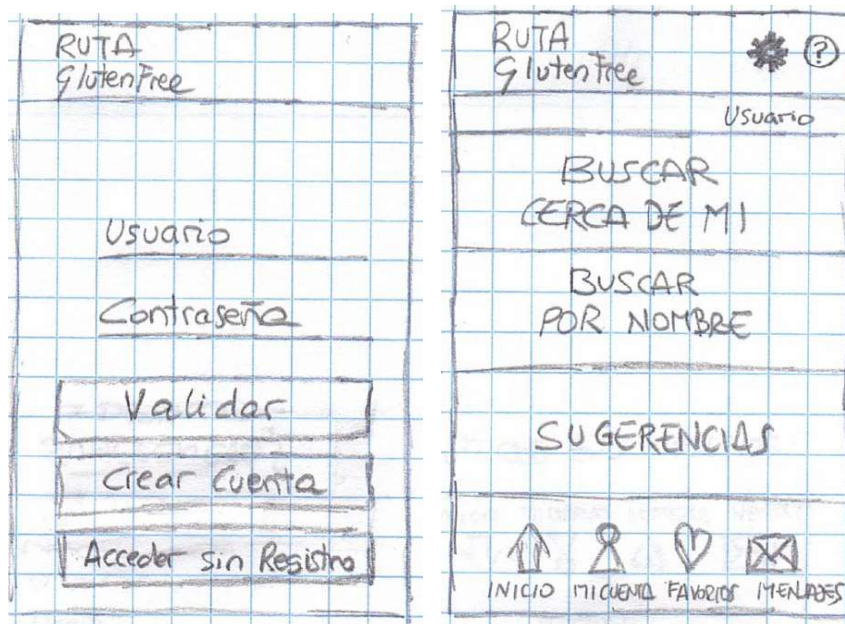 RUTA
Gluten Free
Usuario
Contraseña
Validar
Crear Cuenta
Acceder sin Registro
RUTA
Gluten Free
?
Usuario
BUSCAR
CERCA DE MI
BUSCAR
POR NOMBRE
SUGERENCIAS
INICIO MI CUENTA FAVORITOS MENSAJES